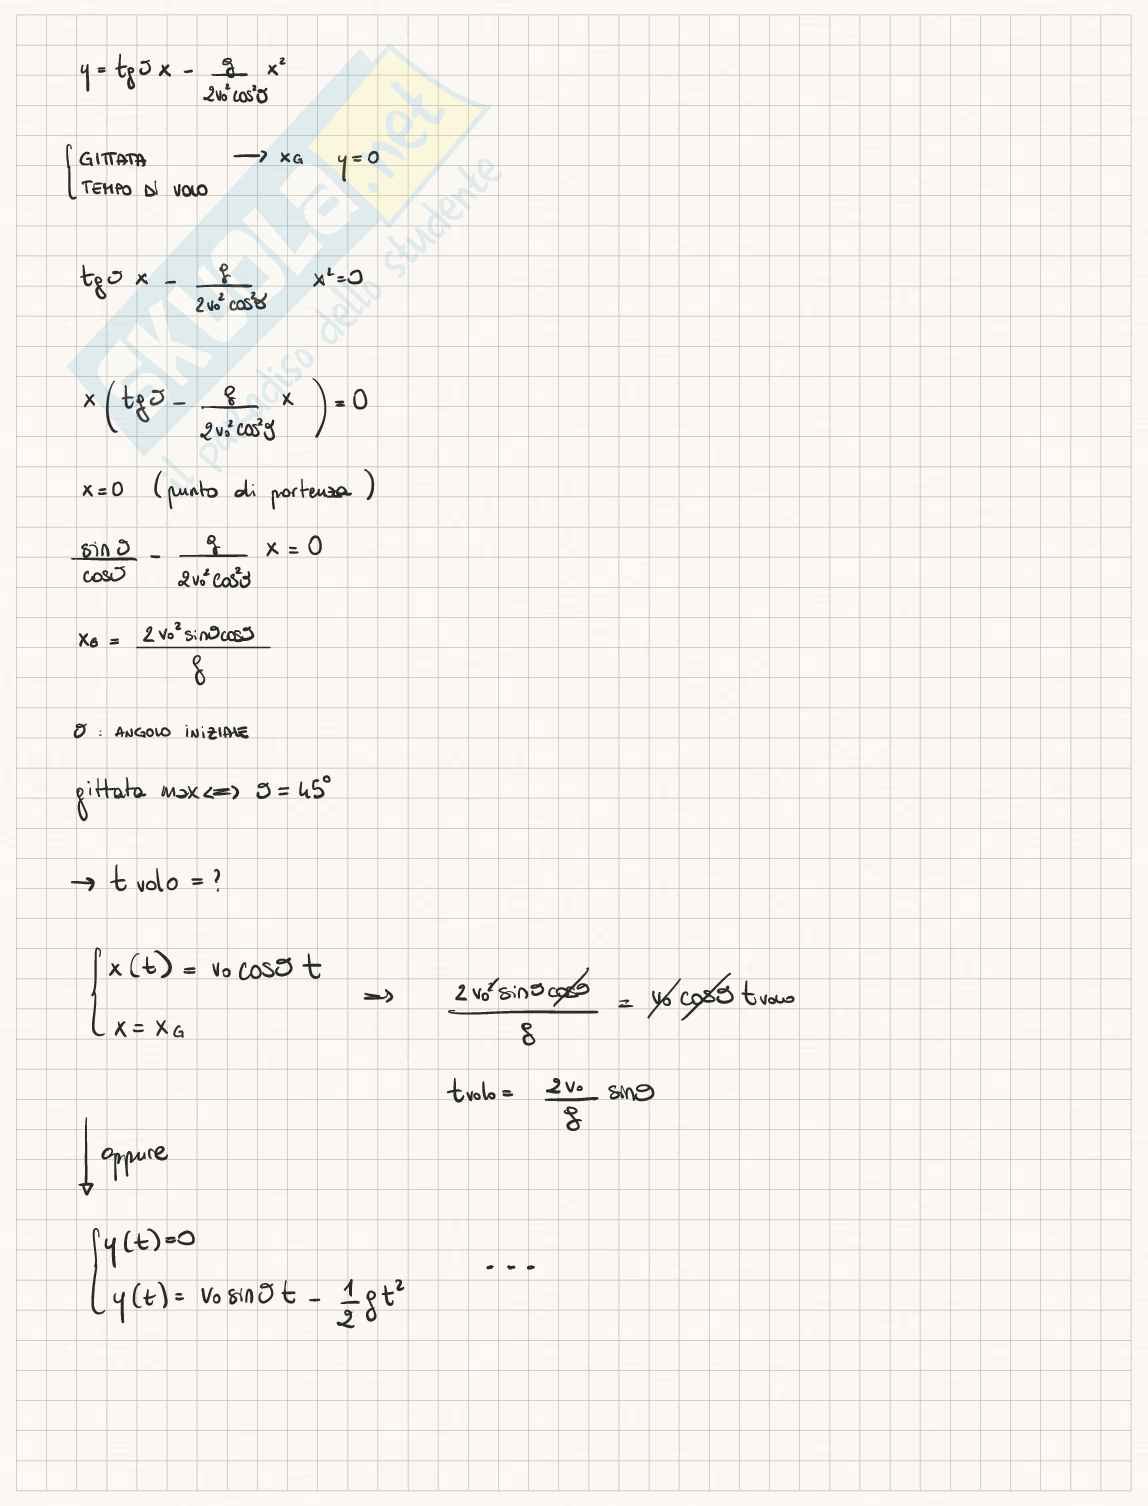 y = tgϑ x - g/(2v₀²cos²ϑ) x²
GITTATA → x_G y = 0
TEMPO DI VOLO
tgϑ x - g/(2v₀²cos²ϑ) x² = 0
x (tgϑ - g/(2v₀²cos²ϑ) x) = 0
x = 0 (punto di partenza)
sinϑ/cosϑ - g/(2v₀²cos²ϑ) x = 0
x_G = 2v₀²sinϑcosϑ/g
ϑ : ANGOLO INIZIALE
gittata max <=> ϑ = 45°
→ t volo = ?
x(t) = v₀ cosϑ t
x = x_G
=> 2v₀²sinϑcosϑ/g = v₀ cosϑ t volo
t volo = 2v₀/g sinϑ
oppure
y(t) = 0
y(t) = v₀ sinϑ t - 1/2 g t²
...
SKUOLA.net
il paradiso dello studente